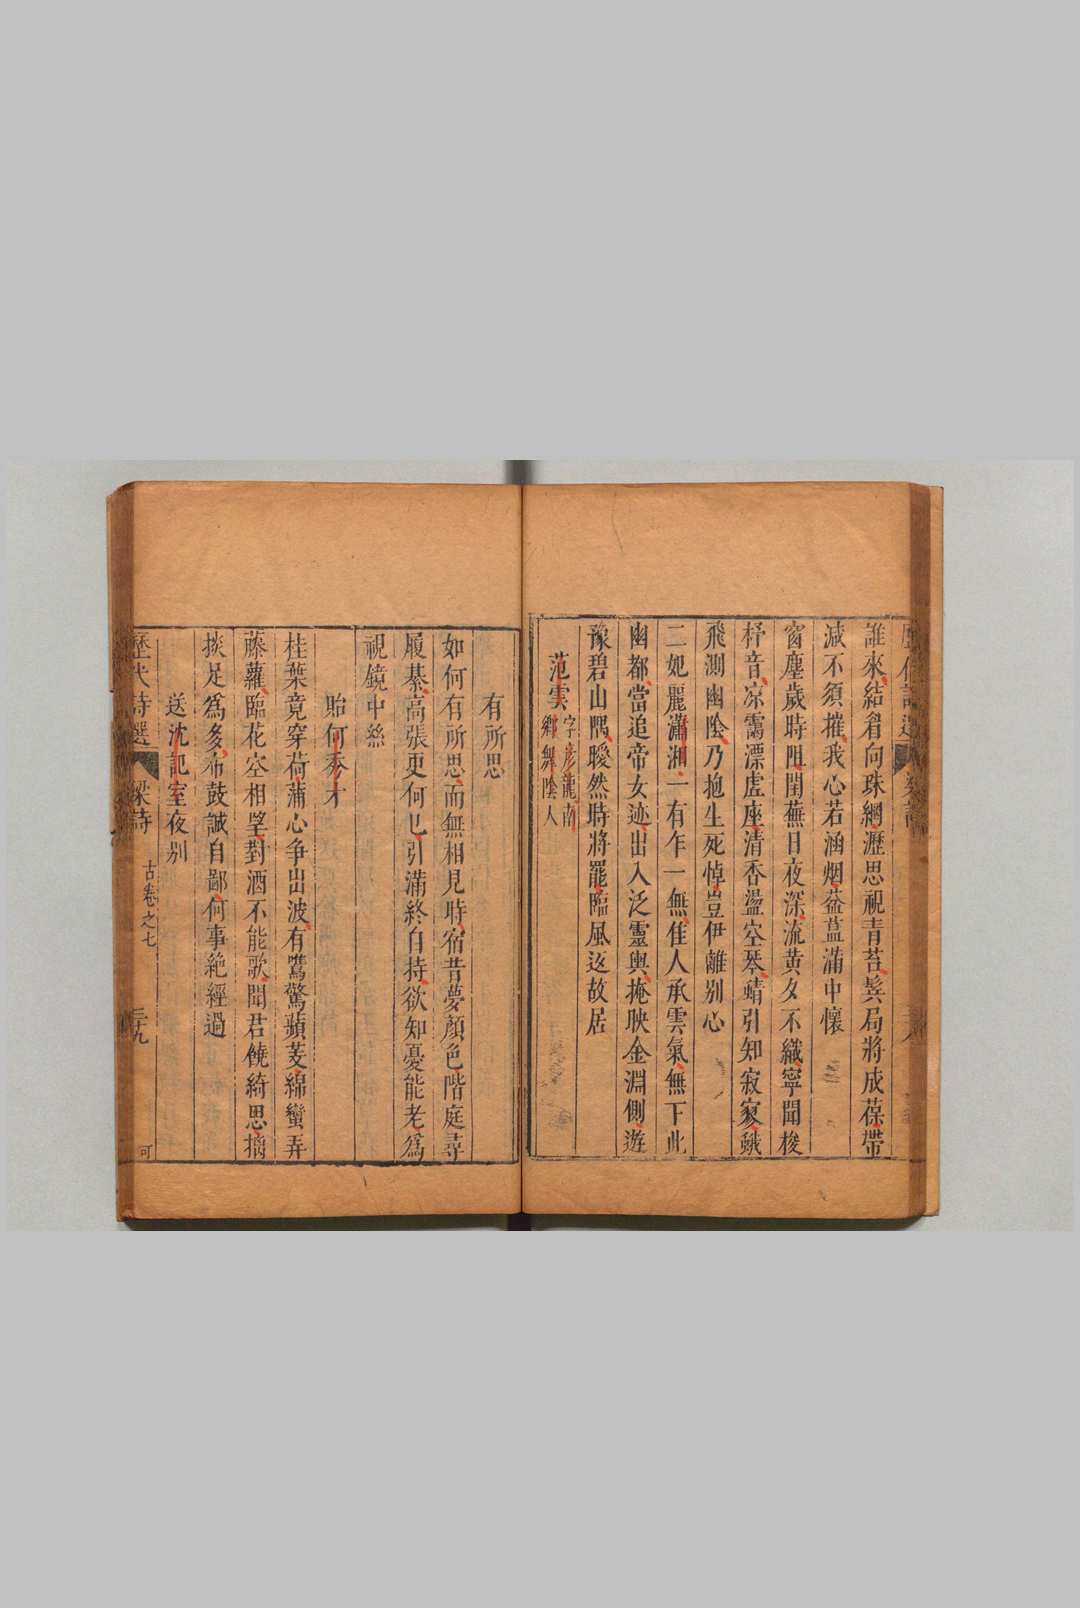 誰來結者向珠網瀝思視青苔髸局將成葆帶
減不須摧我心若涵烟葢蒀滿中懷
窗塵歲時阻閨蕪日夜深流黃夕不織寧聞梭
杼音凉靄漂虗座清香盪空琴蜻引知寂寞蛾
飛測幽陰乃抱生死悼豈伊離别心
二妃麗瀟湘一有乍一無隹人承雲氣無下此
幽都當追帝女迹出入泛靈輿掩映金淵側遊
豫碧山隅曖然時將罷臨風返故居
范雲字彦龍南
鄉舞陰人
有所思
如何有所思而無相見時宿昔夢顏色階庭尋
履綦高張更何已引滿終自持欲知憂能老爲
視鏡中絲
貽何秀才
桂葉竟穿荷蒲心爭出波有鷕驚蘋芰綿蠻弄
藤蘿臨花空相望對酒不能歌聞君饒綺思摛
掞足爲多布鼓誠自鄙何事絶經過
送沈記室夜别
歷代詩選 梁詩 古卷之七 三十九 可